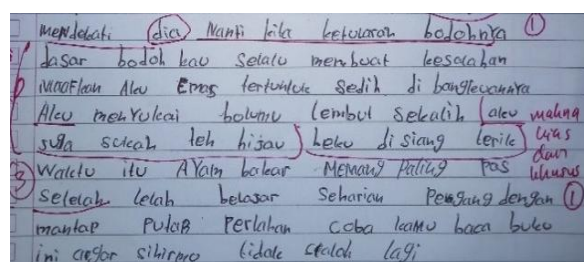 mendekati dia Nanti kita ketularan bodohnya ①
dasar bodoh kau Selalu membuat kesalahan
Maafkan Aku Emas tertunduk Sedih di bangkuannya
Aku menyukai bolumu lembut Sekalih aku makna
suka sukah teh hijau beku di siang terik luas
dan
③ Waktu itu AYam bakar MeMang Paling Pas khusus
Setelah lelah belasar Seharian Pengang dengan ①
mantap PutaR Perlahan Coba kamu baca buku
ini angar sihirmo tidak salah lagi